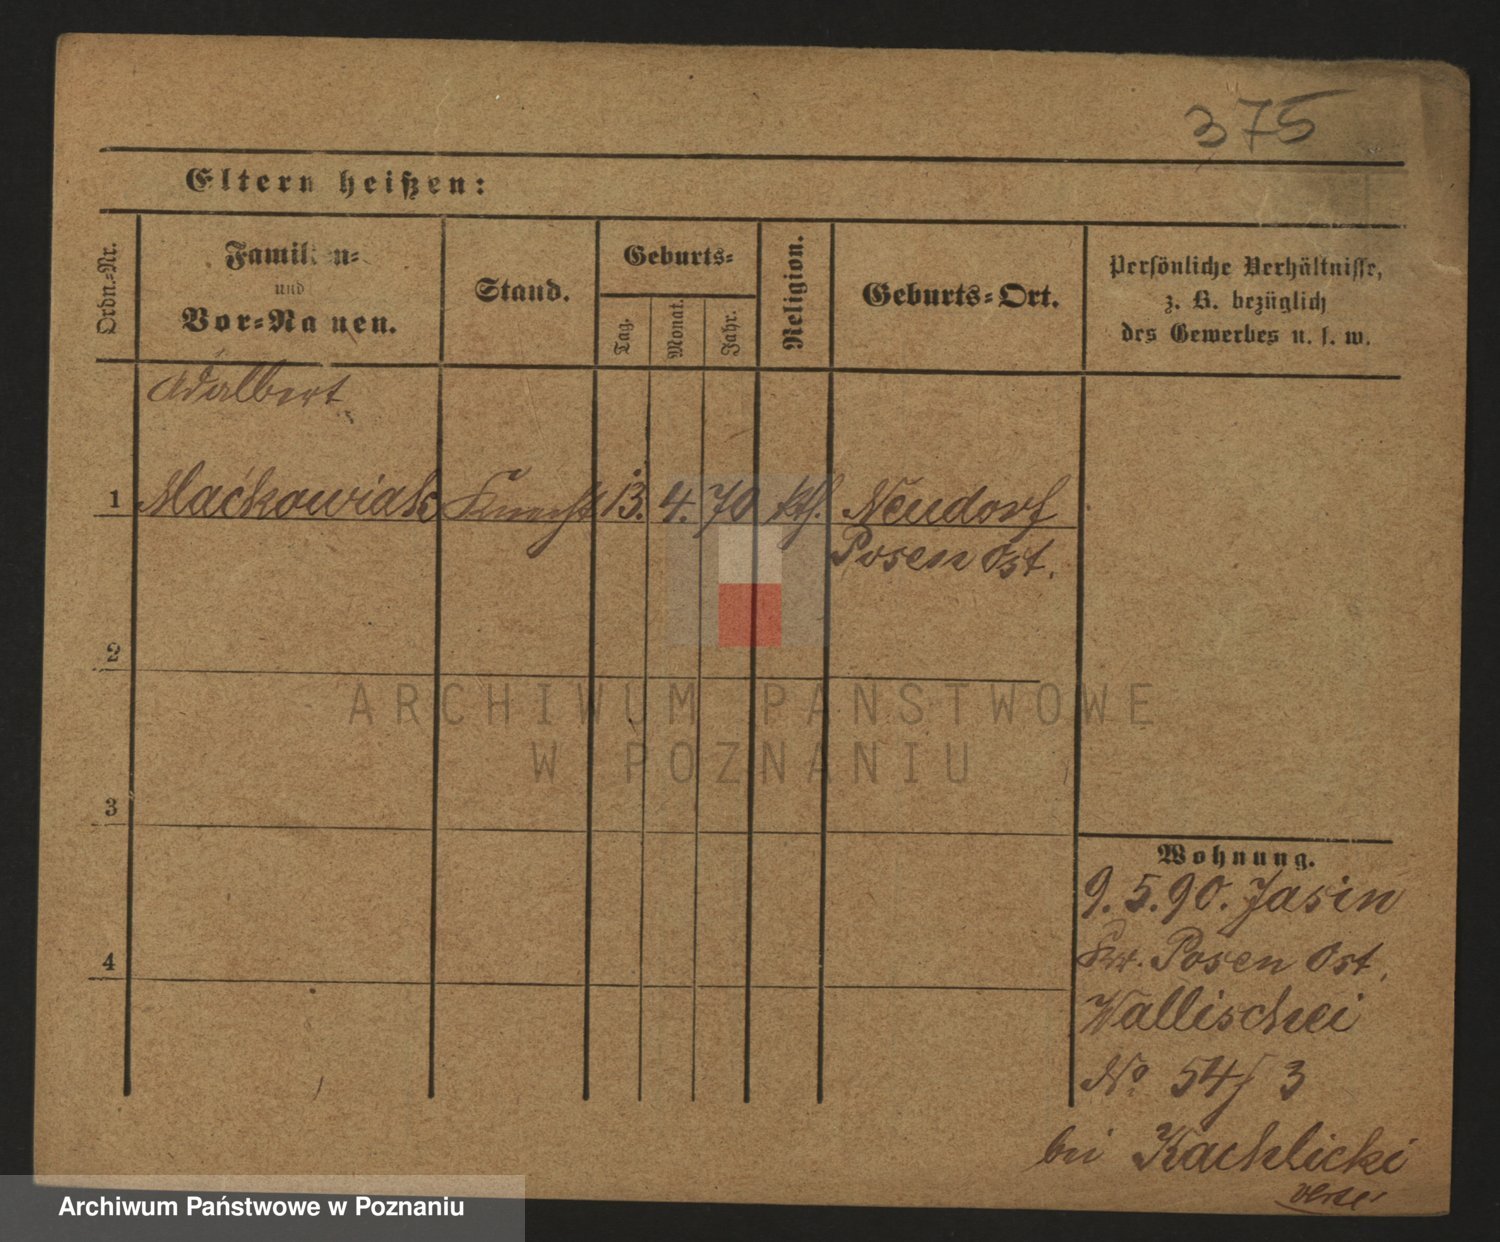 375
Eltern heißen:
Ordn.-Nr.
Familien-
und
Vor-Namen.
Stand.
Geburts-
Tag.
Monat.
Jahr.
Religion.
Geburts-Ort.
Persönliche Verhältnisse,
z. B. bezüglich
des Gewerbes u. s. w.
Adalbert
1 Maćkowiak Knecht 13. 4. 70 kth. Neudorf
Posen Ost.
2
3
4
Wohnung.
9. 5. 90. Jasin
Kr. Posen Ost.
Wallischei
No 54/3
bei Kachlicki
ARCHIWUM PAŃSTWOWE
W POZNANIU
Archiwum Państwowe w Poznaniu